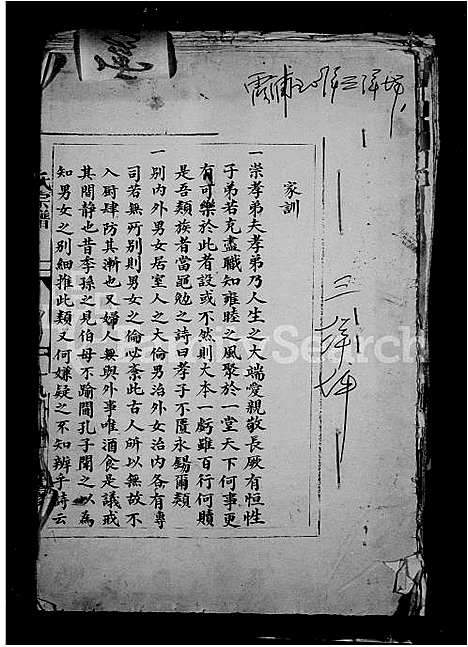 霞浦
三
家訓
一崇孝弟夫孝弟乃人生之大端愛親敬長厥有恒性
子弟若克盡職知雍睦之風聚於一堂天下何事更
有可樂於此者設或不然則大本一虧雖百行何贖
是吾類族者當黽勉之詩曰孝子不匱永錫爾類
一別內外男女居室人之大倫男治外女治內各有專
司若無所別則男女之倫必紊此古人所以無故不
入厨肆防其漸也又婦人無與外事唯酒食是議戒
其間靜也昔季孫之見伯母不踰閫孔子聞之以為
知男女之別細推此類又何嫌疑之不知辨乎詩云
氏宗譜
FamilySearch